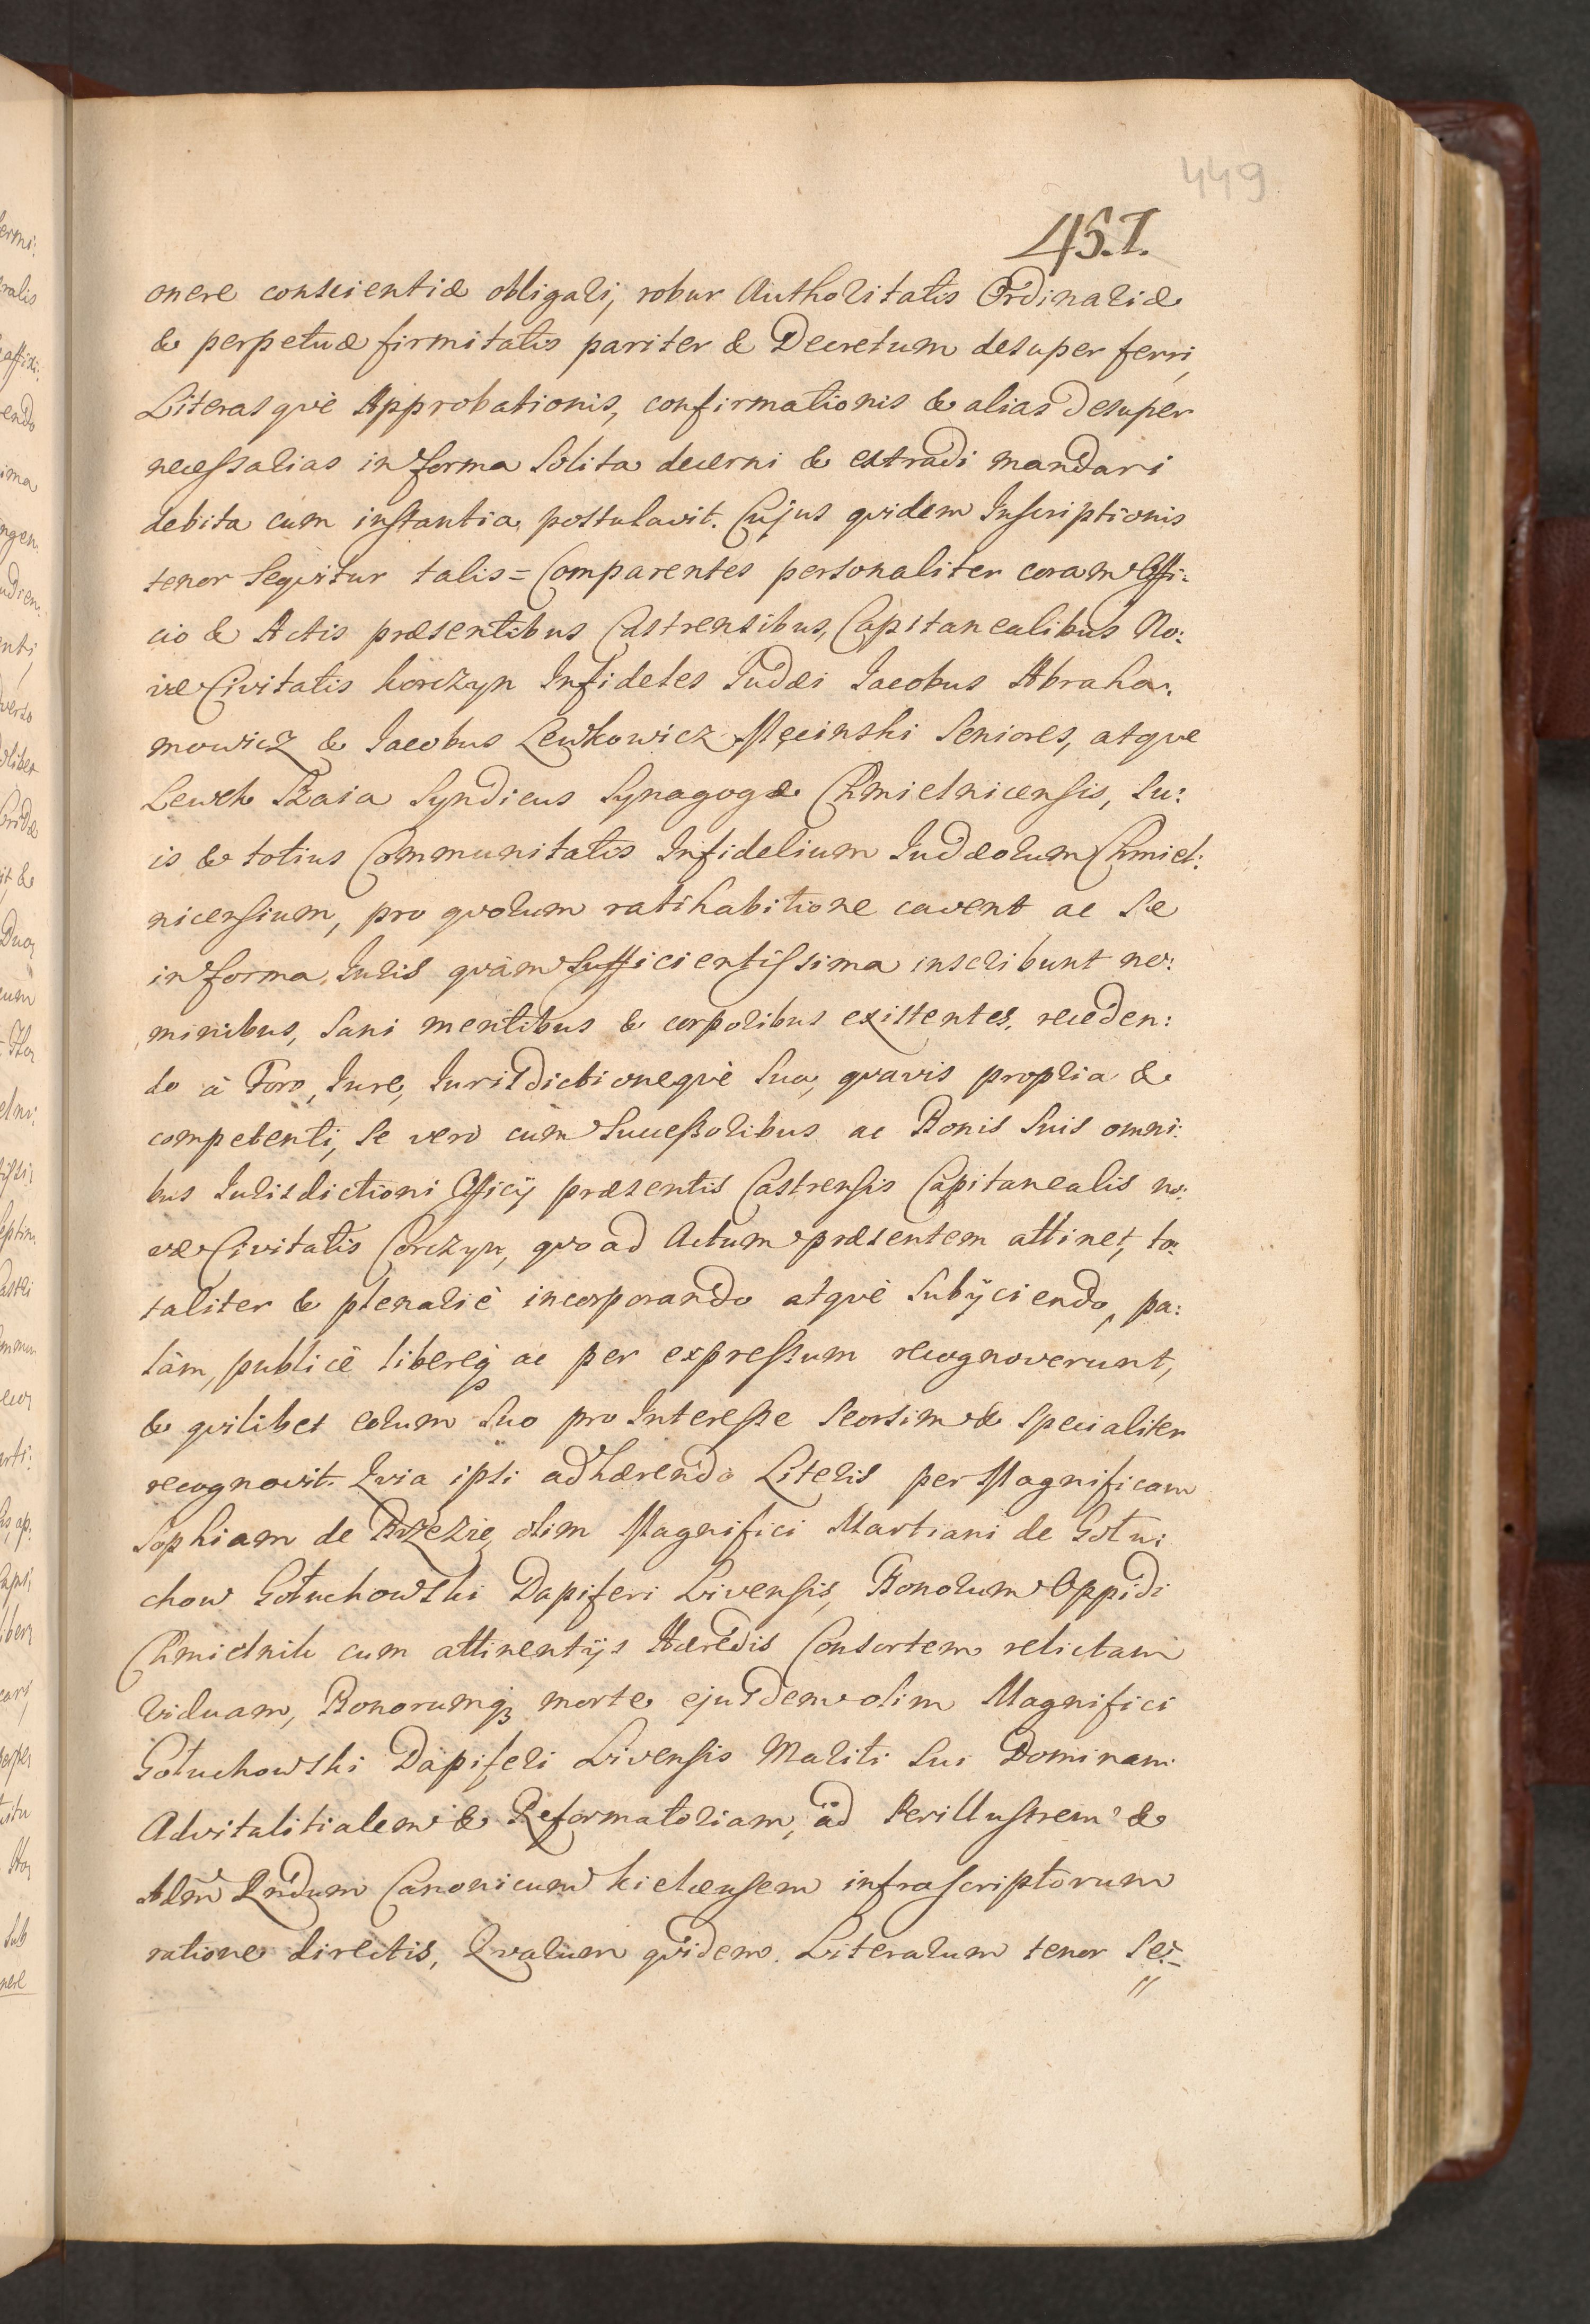 449
451.
onere conscientiæ obligari, robur Authoritatis Ordinariæ
& perpetuæ firmitatis pariter & Decretum desuper ferri,
Literasquè Approbationis, confirmationis & alias desuper
necessarias in forma solita decerni & extradi mandari
debita cum instantia postulavit. Cujus quidem Inscriptionis
tenor sequitur talis = Comparentes personaliter coram Offi:
cio & Actis præsentibus Castrensibus, Capitanealibus No:
væ Civitatis Korczyn Infideles Judæi Jacobus Abraha:
mowicz & Jacobus Lewkowicz Męcinski Seniores, atque
Lewek Syndicus Synagogæ Chmielnicensis, su:
is & totius Communitatis Infidelium Judæorum Chmiel:
nicensium, pro quorum ratihabitione cavent ac se
in forma Juris quàm sufficientissima inscribunt no:
minibus, sani mentibus & corporibus existentes, receden:
do à Foro, Jure, Jurisdictionequè sua, quavis propria &
competenti, se verò cum Successoribus ac Bonis suis omni:
bus Jurisdictioni Officij præsentis Castrensis Capitanealis no:
væ Civitatis Corczyn, quo ad Actum præsentem attinet, to:
taliter & plenariè incorporando atquè subijciendo, pa:
làm, publicè libereq ac per expressum recognoverunt,
& quilibet eorum suo pro Interesse seorsim & specialiter
recognovit. Quia ipsi adhærendo Literis per Magnificam
Sophiam de Brzezie, olim Magnifici Martiani de Gołu:
chow Gołuchowski Dapiferi Livensis, Bonorum Oppidi
Chmielnik cum attinentijs Hæredis Consortem relictam
Viduam, Bonorumq; morte ejusdem olim Magnifici
Gołuchowski Dapiferi Livensis Mariti sui Dominam
Advitalitialem & Reformatoriam, ad Perillustrem &
Adm Rndum Canonicum Kielcensem infrascriptorum
ratione directis, Quarum quidem Literarum tenor se: